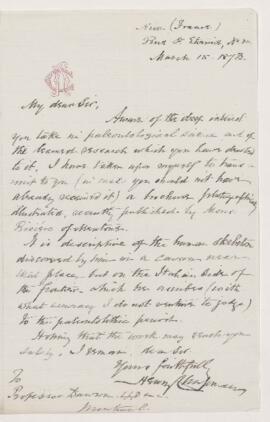 Nice (France)
March 15. 1873.
My dear Sir,
Aware of the deep interest
you take in paleontological science and of
the learned research which you have devoted
to it, I have taken upon myself to trans-
mit to you (in case you should not have
already received it) a brochure photographically
illustrated, recently published by Mons.
Rivière of Mentone.
It is descriptive of the human skeleton
discovered by him in a cavern near
that place but on the Italian side of
the frontier which he ascribes (with
what accuracy I do not venture to judge)
to the paleolithic period.
Hoping that the work may reach you
safely, I remain, dear Sir
Yours faithfully
Henry Chapman
To
Professor Dawson
Montreal.